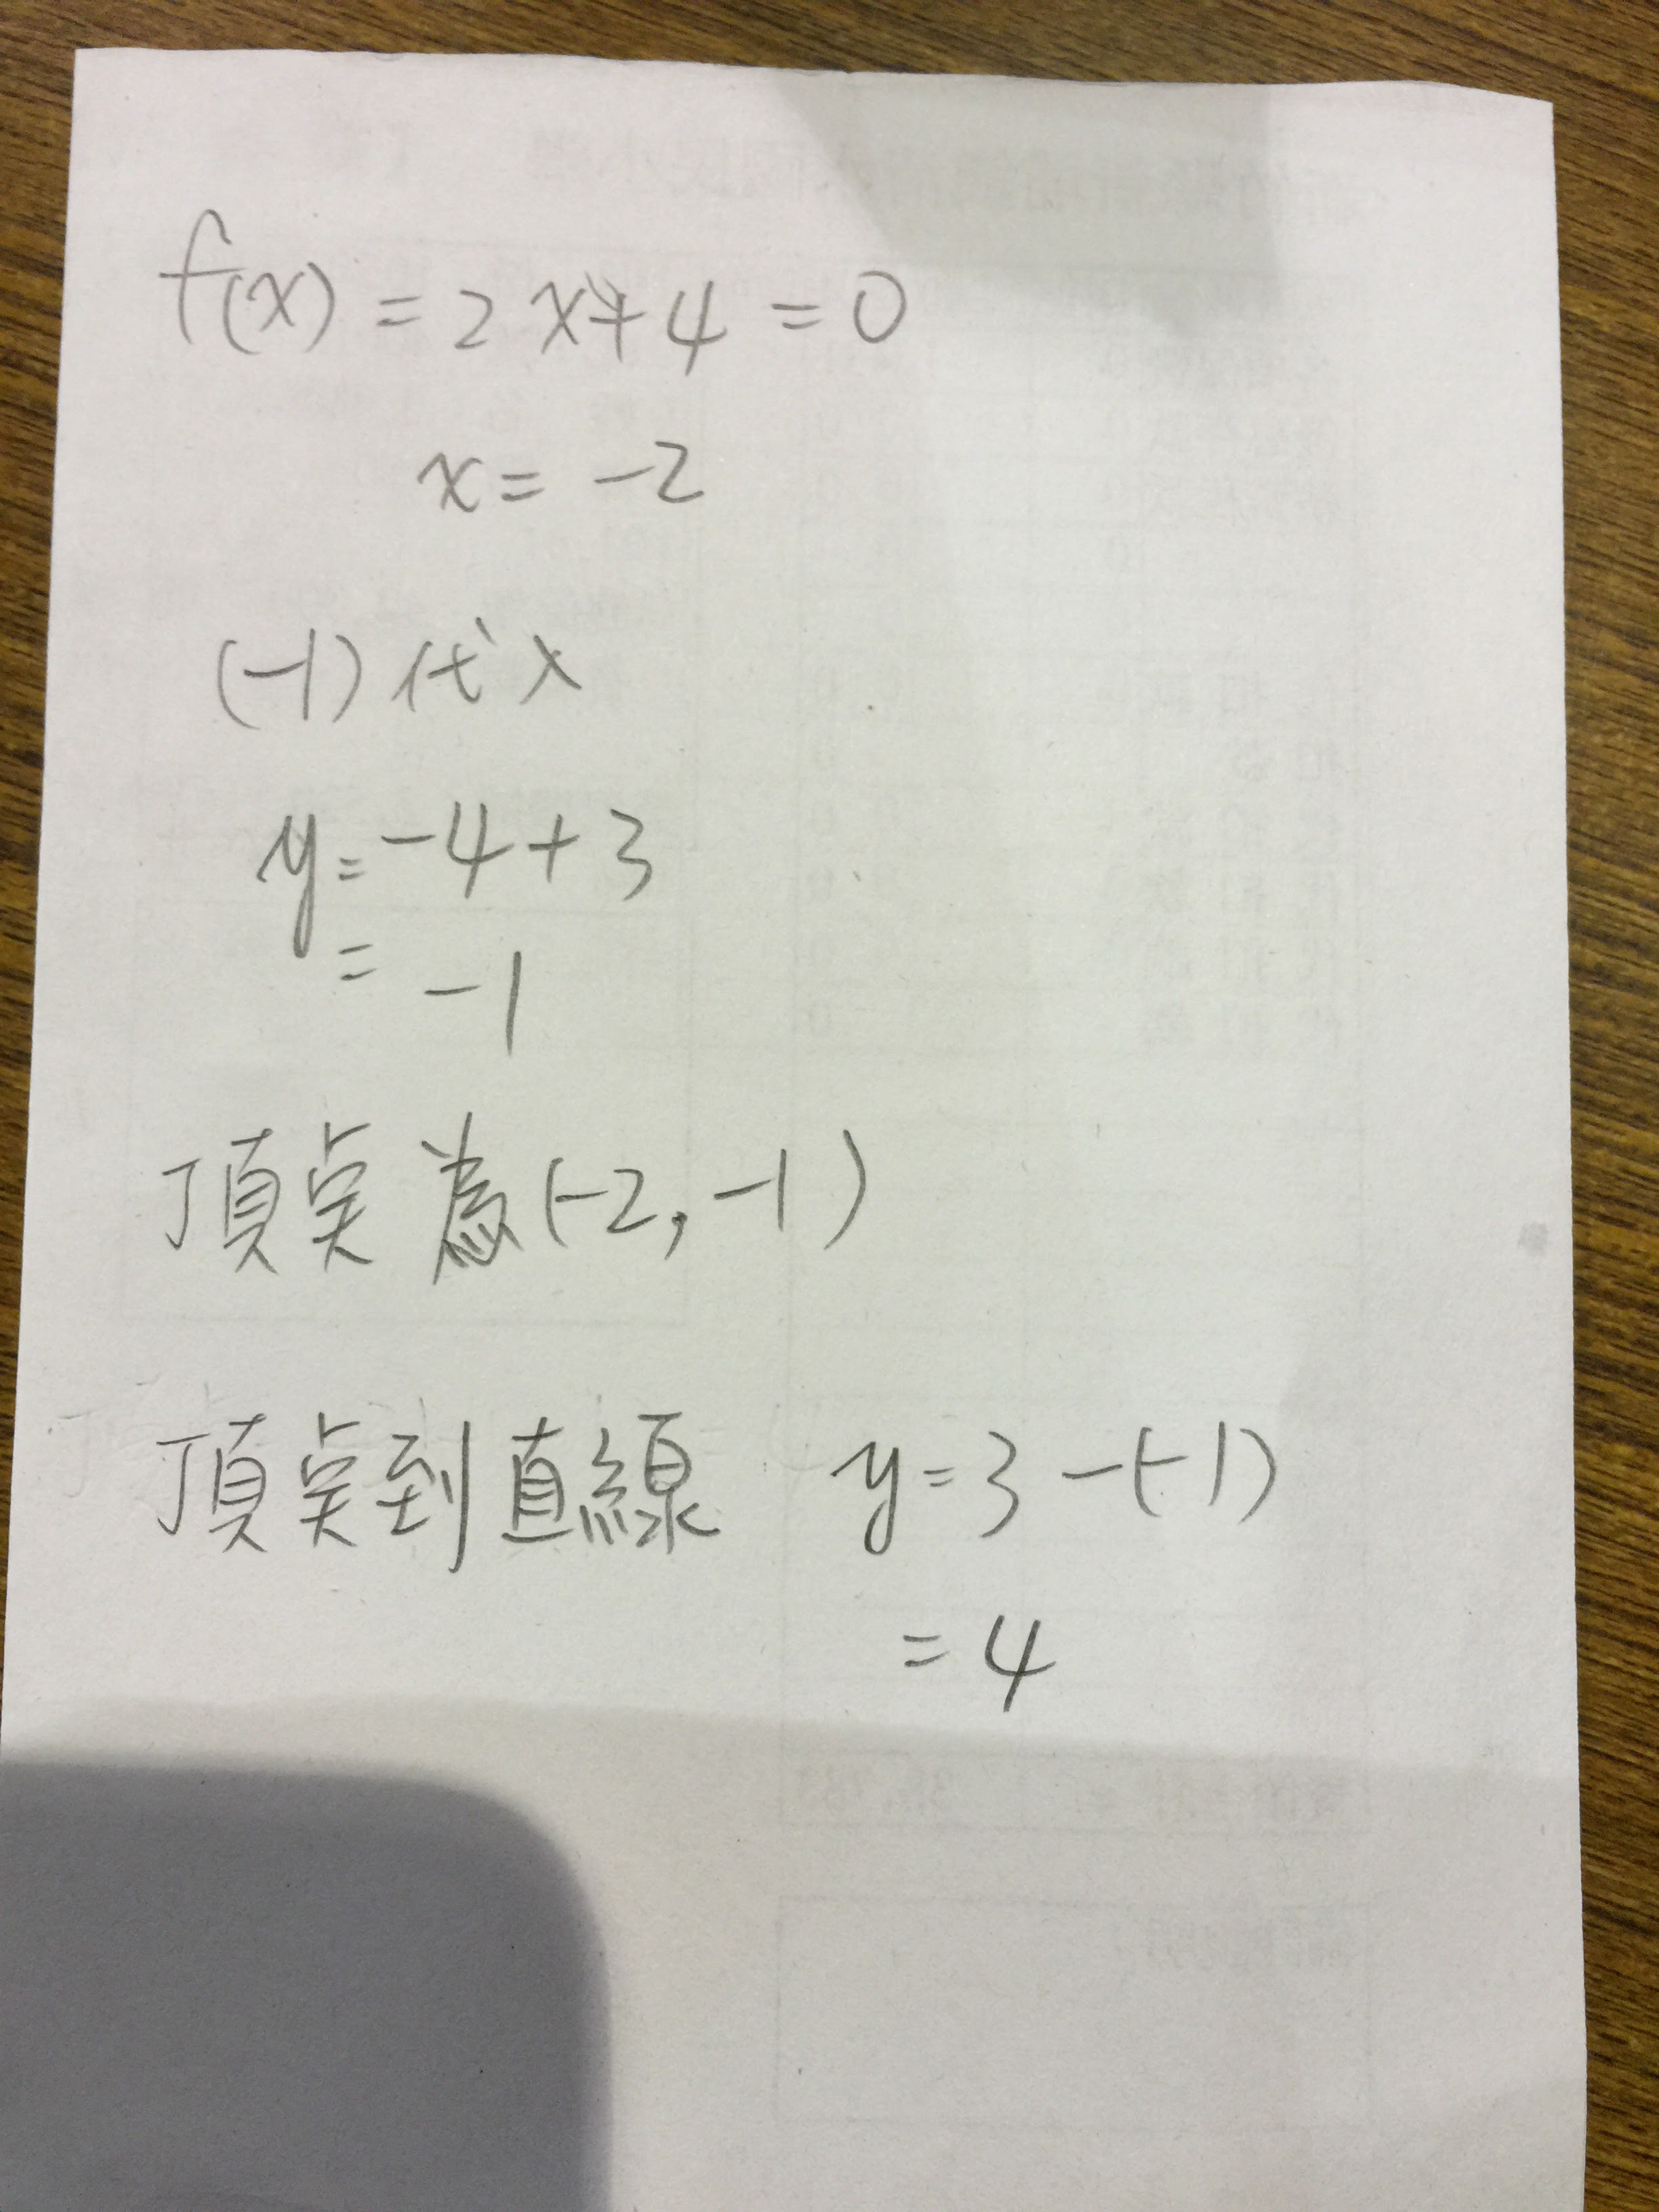 f(x) = 2x+4 = 0
x = -2
(-1) 代 x
y = -4+3
= -1
頂点為(-2, -1)
頂点到直線 y = 3-(-1)
= 4